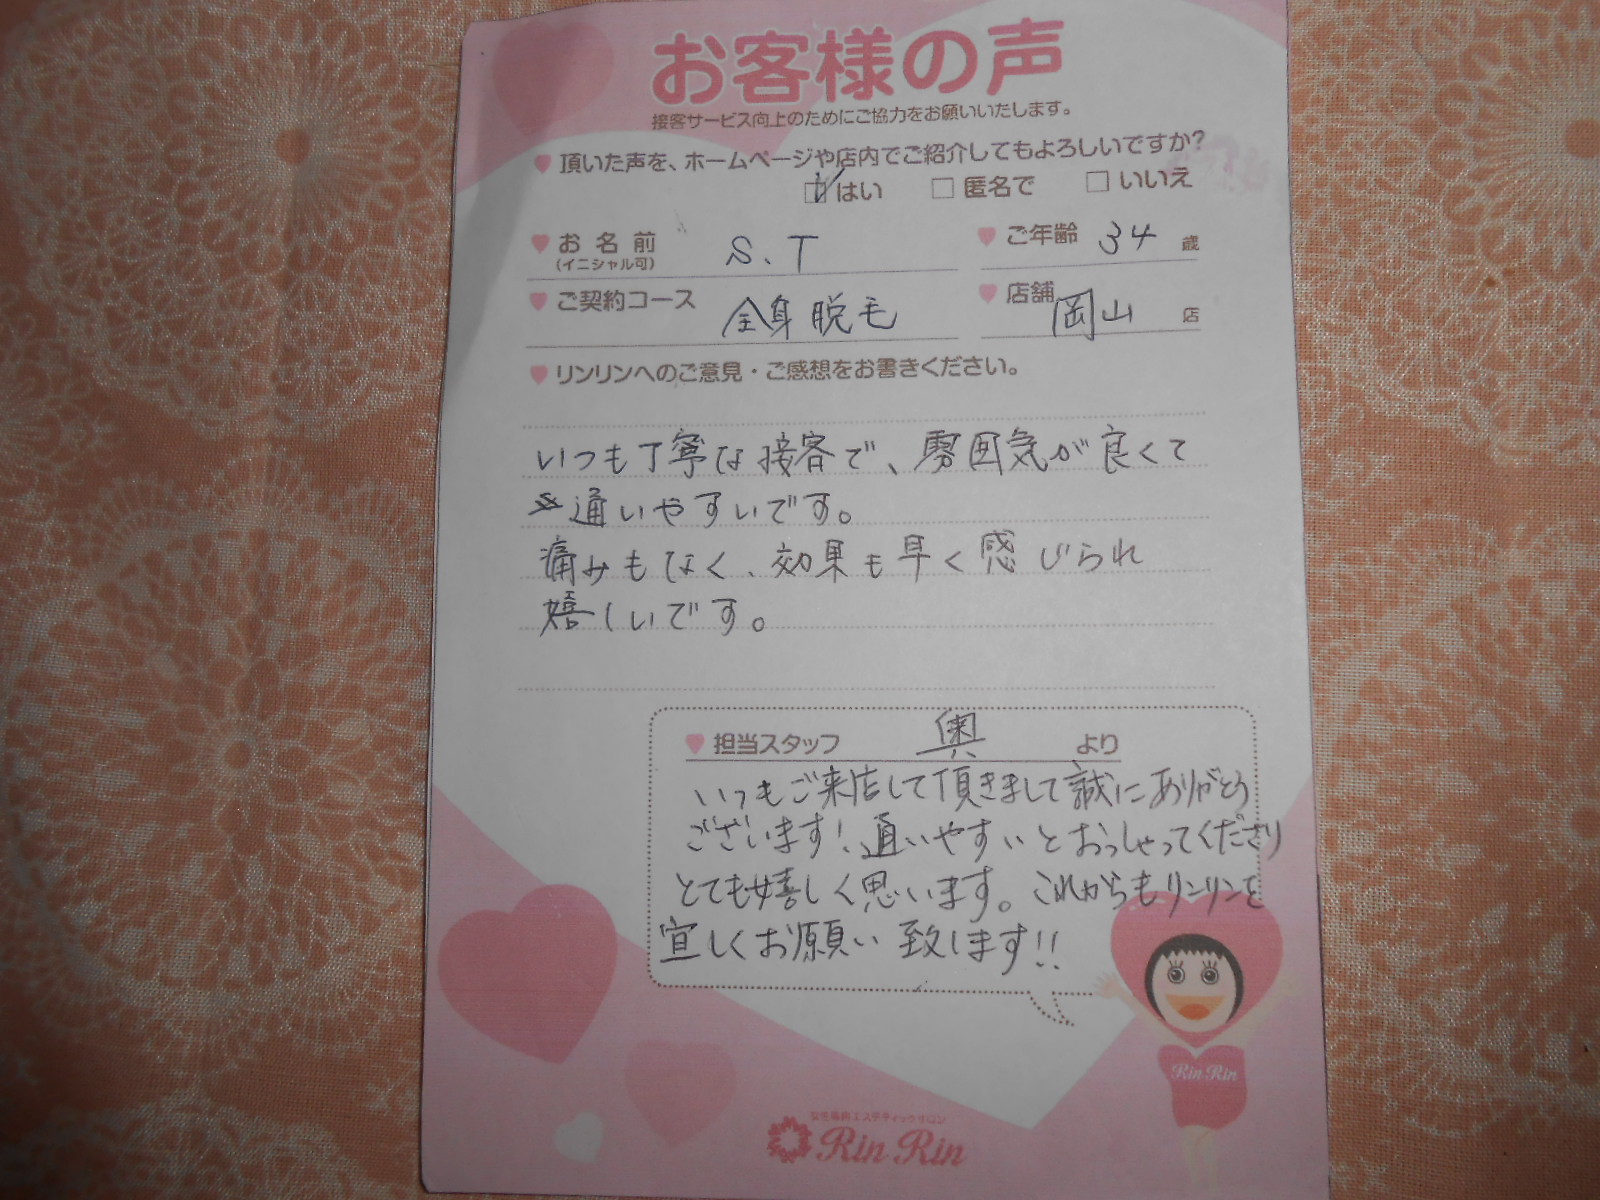 お客様の声
接客サービス向上のためにご協力をお願いいたします。
頂いた声を、ホームページや店内でご紹介してもよろしいですか?
はい 匿名で いいえ
お名前 (イニシャル可) S.T ご年齢 34 歳
ご契約コース 全身脱毛 店舗 岡山 店
リンリンへのご意見・ご感想をお書きください。
いつも丁寧な接客で、雰囲気が良くて
通いやすいです。
痛みもなく、効果も早く感じられ
嬉しいです。
担当スタッフ 奥 より
いつもご来店して頂きまして誠にありがとう
ございます!通いやすいとおっしゃってくださり
とても嬉しく思います。これからもリンリンを
宜しくお願い致します!!
Rin Rin
女性専用エステティックサロン
Rin Rin